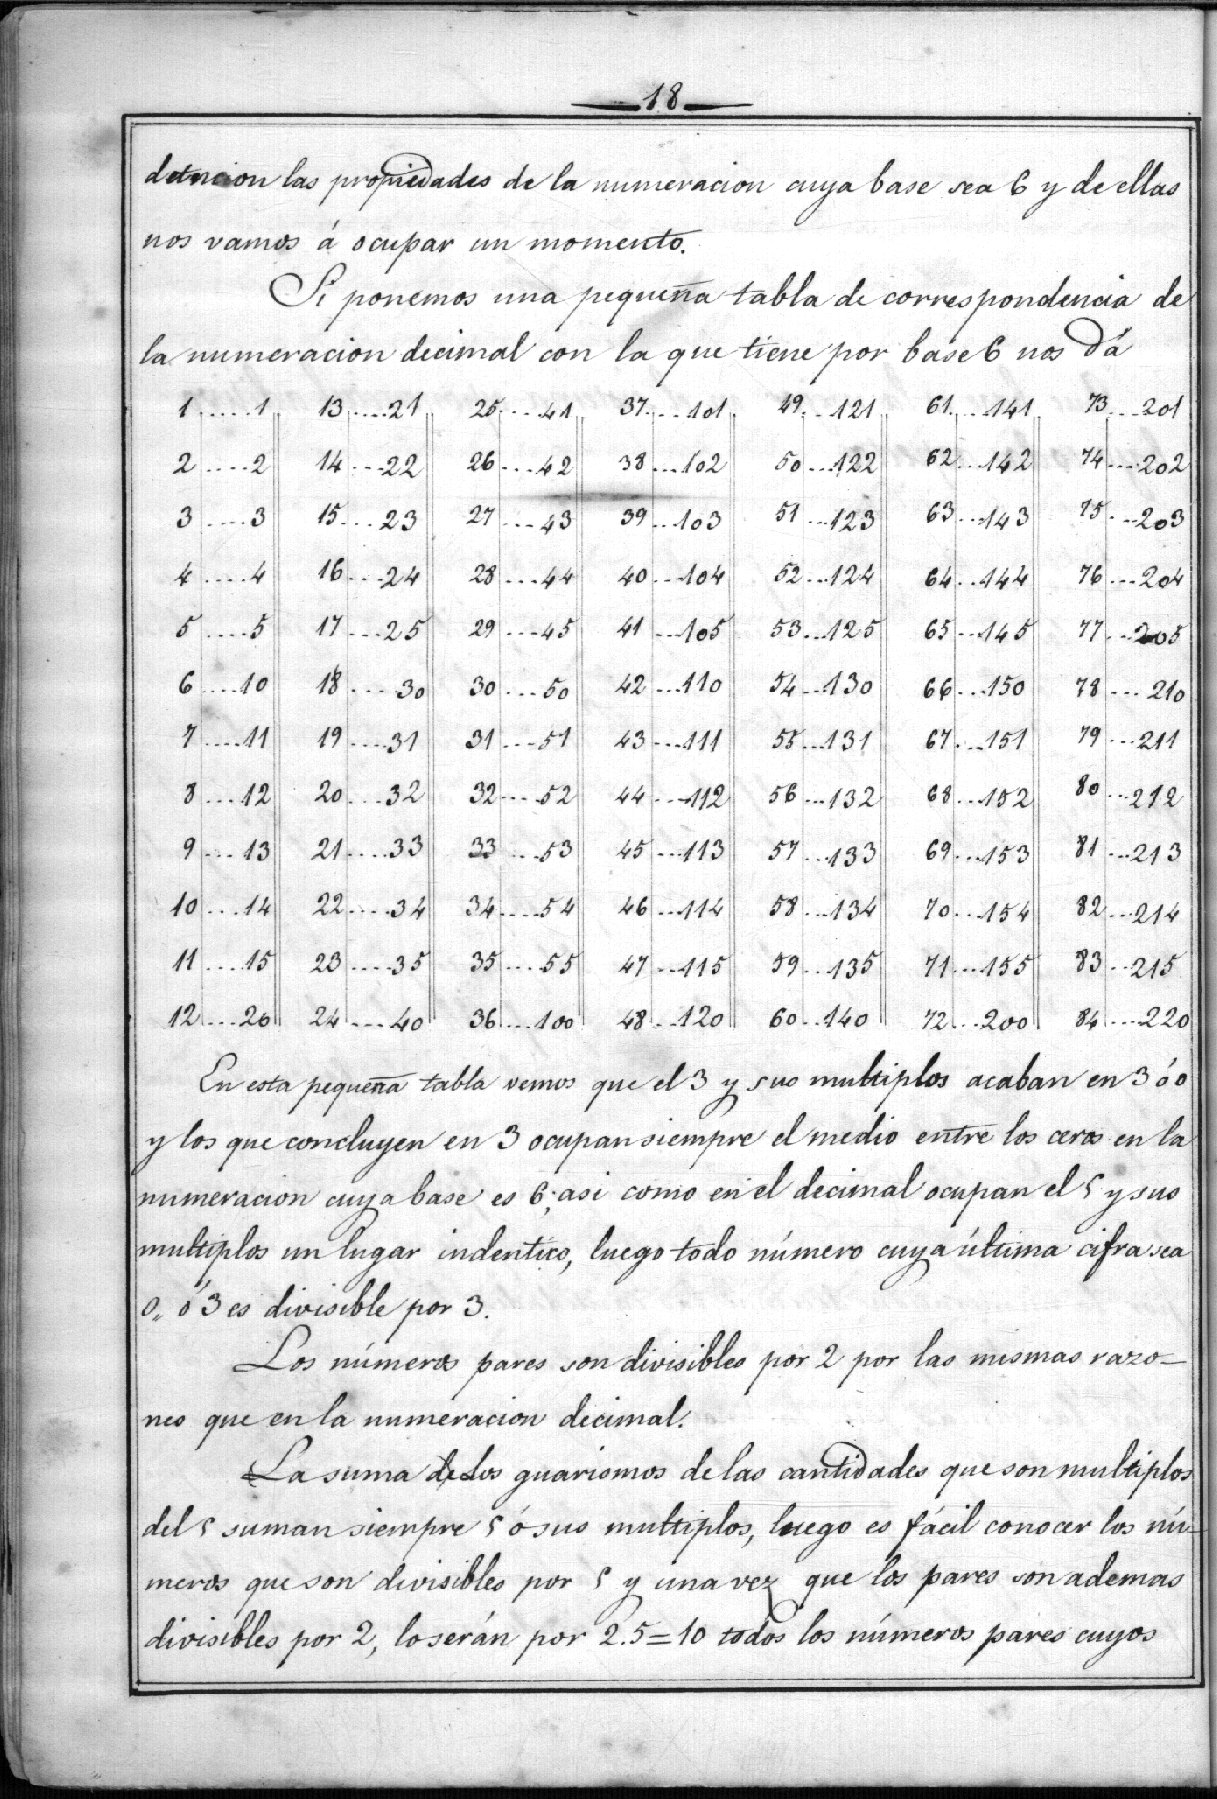 18
detencion las propiedades de la numeracion cuya base sea 6 y de ellas
nos vamos á ocupar un momento.
Si ponemos una pequeña tabla de correspondencia de
la numeracion decimal con la que tiene por base 6 nos dá
1.....1 13....21 25....41 37....101 49...121 61....141 73...201
2....2 14...22 26...42 38...102 50...122 62...142 74....202
3....3 15...23 27...43 39..103 51...123 63...143 75...203
4....4 16...24 28...44 40...104 52...124 64...144 76...204
5....5 17...25 29...45 41...105 53...125 65...145 77...205
6....10 18...30 30...50 42...110 54...130 66...150 78...210
7....11 19....31 31...51 43...111 55...131 67...151 79...211
8...12 20...32 32...52 44...112 56...132 68...152 80...212
9...13 21....33 33...53 45...113 57...133 69...153 81...213
10...14 22....34 34....54 46...114 58...134 70...154 82...214
11...15 23....35 35....55 47...115 59...135 71....155 83...215
12...20 24....40 36....100 48...120 60...140 72...200 84....220
En esta pequeña tabla vemos que el 3 y sus multiplos acaban en 3 ó 0
y los que concluyen en 3 ocupan siempre el medio entre los ceros en la
numeracion cuya base es 6; asi como en el decimal ocupan el 5 y sus
multiplos un lugar indentico, luego todo número cuya última cifra sea
0,, ó 3 es divisible por 3.
Los números pares son divisibles por 2 por las mismas razo-
nes que en la numeracion decimal.
La suma de los guarismos de las cantidades que son multiplos
del 5 suman siempre 5 ó sus multiplos, luego es fácil conocer los nú-
meros que son divisibles por 5 y una vez que los pares son ademas
divisibles por 2, lo serán por 2.5=10 todos los números pares cuyos